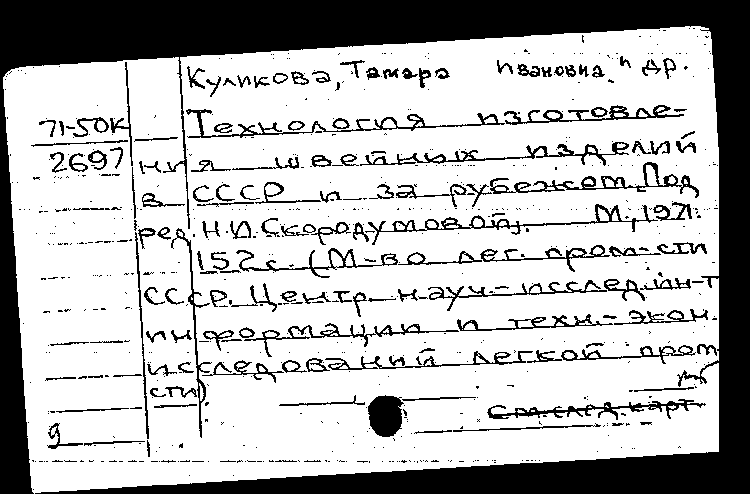 Куликова, Тамара Ивановна и др.
71-50К Технология изготовле-
2697 ния швейных изделий
в СССР и за рубежом. Под
ред. Н.И. Скородумовой. М., 1971.
152 с. (М-во лег. пром-сти
СССР. Центр. науч.-исслед. ин-т
информации и техн.-экон.
исследований легкой пром-
сти).
См. след. карт.
9